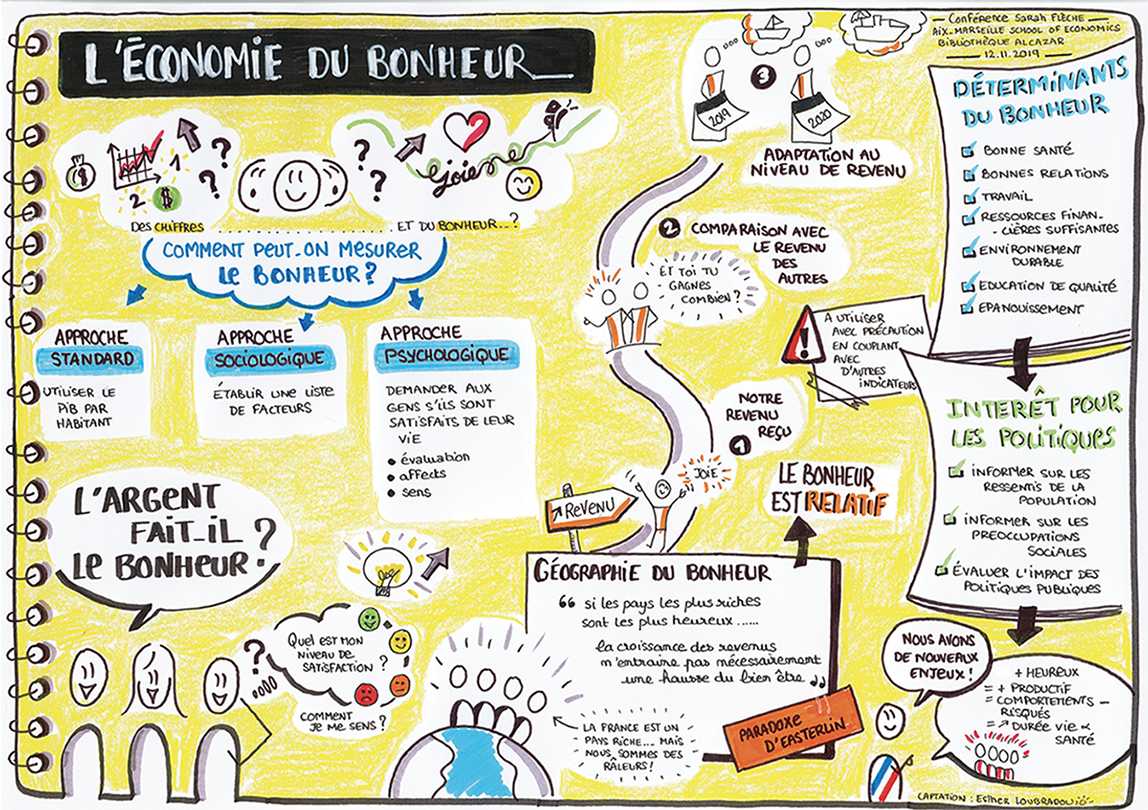 L'ÉCONOMIE DU BONHEUR
Conférence Sarah Flèche
Aix-Marseille School of Economics
Bibliothèque Alcazar
12.11.2019
1
2
$
?
?
?
?
joie
DES CHIFFRES .......................... ET DU BONHEUR...?
COMMENT PEUT-ON MESURER
LE BONHEUR?
APPROCHE
STANDARD
UTILISER LE
PIB PAR
HABITANT
APPROCHE
SOCIOLOGIQUE
ÉTABLIR UNE LISTE
DE FACTEURS
APPROCHE
PSYCHOLOGIQUE
DEMANDER AUX
GENS S'ILS SONT
SATISFAITS DE LEUR
VIE
• évaluation
• affects
• sens
L'ARGENT
FAIT-IL
LE BONHEUR?
?
QUEL EST MON
NIVEAU DE
SATISFACTION ?
COMMENT
JE ME SENS ?
REVENU
1
NOTRE
REVENU
REÇU
JOIE
2 COMPARAISON AVEC
LE REVENU
DES
AUTRES
ET TOI TU
GAGNES
COMBIEN ?
3
2019
2020
ADAPTATION AU
NIVEAU DE REVENU
!
A UTILISER
AVEC PRÉCAUTION
EN COUPLANT
AVEC
D'AUTRES
INDICATEURS
LE BONHEUR
EST RELATIF
GÉOGRAPHIE DU BONHEUR
“ si les pays les plus riches
sont les plus heureux ......
la croissance des revenus
n'entraine pas nécessairement
une hausse du bien être „
PARADOXE
D'EASTERLIN
LA FRANCE EST UN
PAYS RICHE... MAIS
NOUS SOMMES DES
RÂLEURS!
DÉTERMINANTS
DU BONHEUR
BONNE SANTÉ
BONNES RELATIONS
TRAVAIL
RESSOURCES FINAN-
-CIÈRES SUFFISANTES
ENVIRONNEMENT
DURABLE
EDUCATION DE QUALITÉ
EPANOUISSEMENT
INTERÊT POUR
LES POLITIQUES
INFORMER SUR LES
RESSENTIS DE LA
POPULATION
INFORMER SUR LES
PREOCCUPATIONS
SOCIALES
ÉVALUER L'IMPACT DES
POLITIQUES PUBLIQUES
NOUS AVONS
DE NOUVEAUX
ENJEUX!
+ HEUREUX
= + PRODUCTIF
= COMPORTEMENTS -
RISQUÉS
= ↗ DURÉE VIE &
SANTÉ
CAPTATION : ESTHER LOUBRADOU